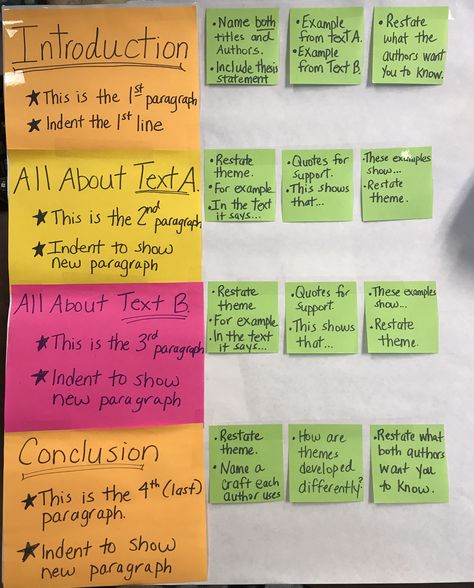 Introduction
★This is the 1st paragraph
★Indent the 1st line
•Name both
titles and
Authors.
•Include thesis
statement
•Example
from text A.
•Example
from Text B.
•Restate
what the
authors want
you to know.
All About Text A.
★This is the 2nd
paragraph
★Indent to show
new paragraph
•Restate
theme.
•For example
•In the text
it says...
•Quotes for
support.
•This shows
that...
•These examples
show...
•Restate
theme.
All About Text B.
★This is the 3rd
paragraph
★Indent to show
new paragraph
•Restate
theme
•For example
•In the text
it says...
•Quotes for
support.
•This shows
that...
•These examples
show...
•Restate
theme.
Conclusion
★This is the 4th (last)
paragraph.
★Indent to show
new paragraph
•Restate
theme.
•Name a
craft each
author uses
•How are
themes
developed
differently?
•Restate what
both authors
want you
to know.